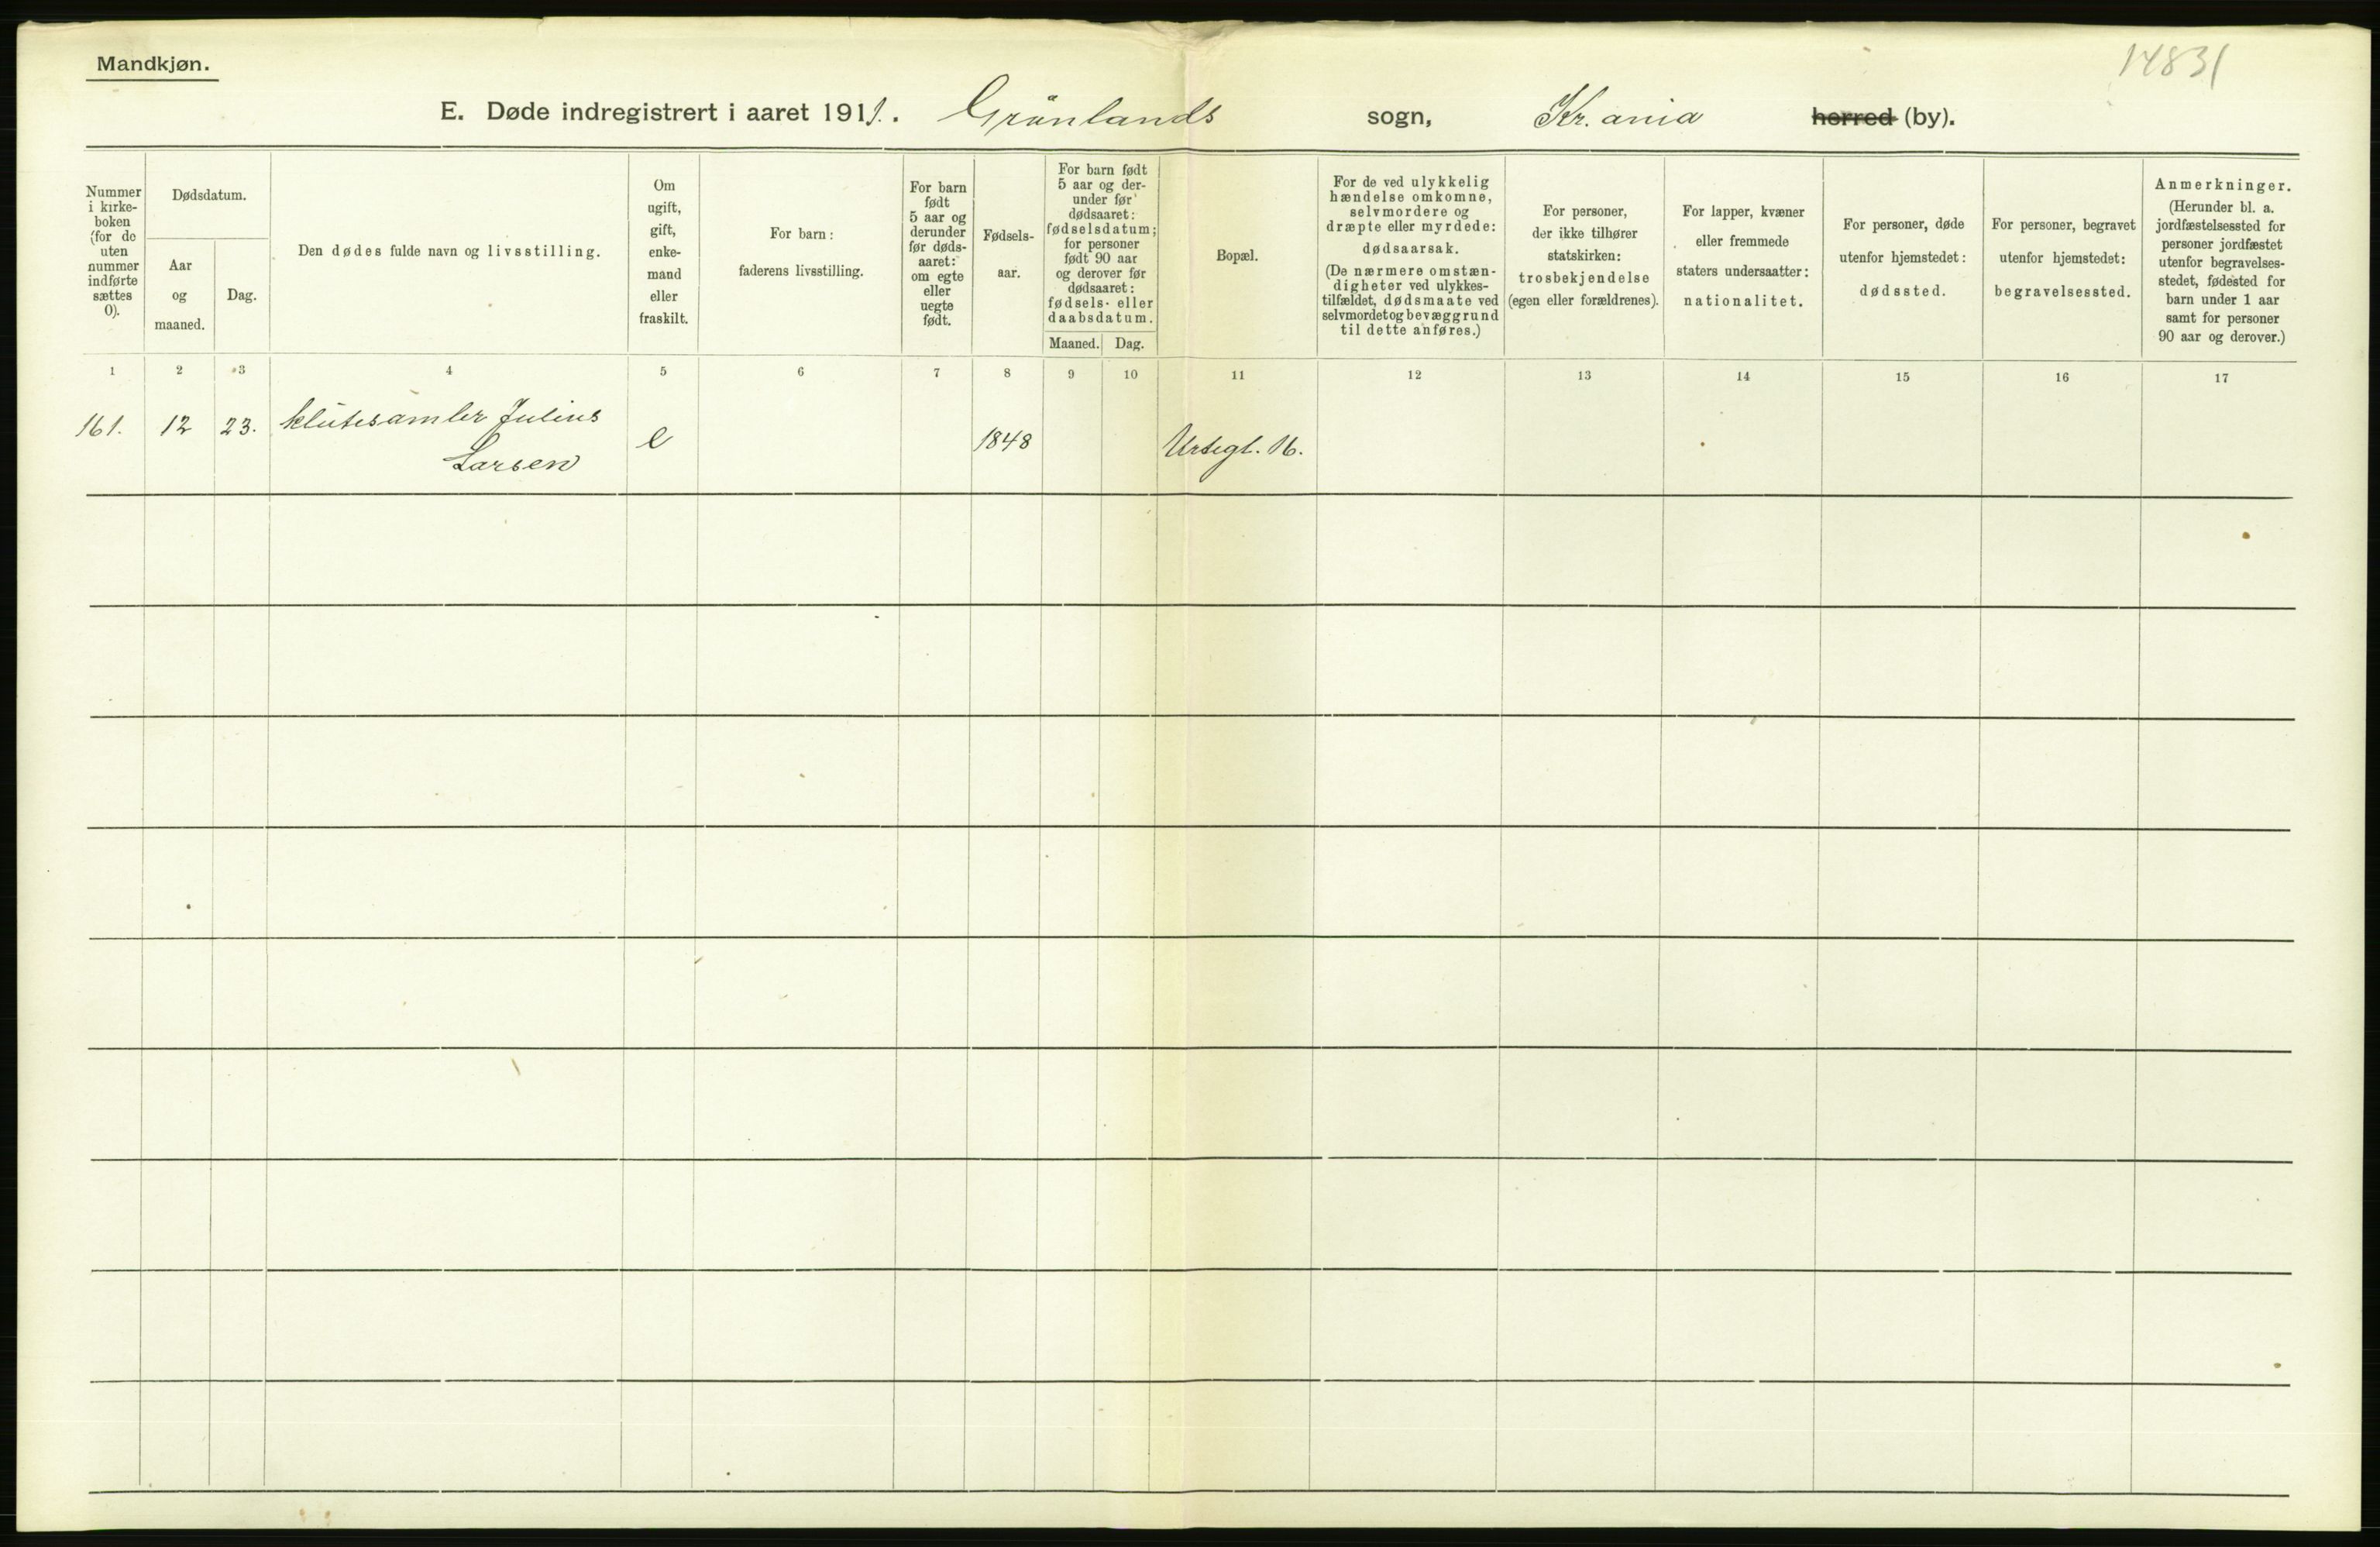 Mandkjøn.
14831
E. Døde indregistrert i aaret 1911. Grönlands sogn, Kr.ania herred (by).
Nummer
i kirke-
boken
(for de
uten
nummer
indførte
sættes
0).
Dødsdatum.
Aar
og
maaned.
Dag.
Den dødes fulde navn og livsstilling.
Om
ugift,
gift,
enke-
mand
eller
fraskilt.
For barn:
faderens livsstilling.
For barn
født
5 aar og
derunder
før døds-
aaret:
om egte
eller
uegte
født.
Fødsels-
aar.
For barn født
5 aar og der-
under før
dødsaaret:
fødselsdatum;
for personer
født 90 aar
og derover før
dødsaaret:
fødsels- eller
daabsdatum.
Maaned.
Dag.
Bopæl.
For de ved ulykkelig
hændelse omkomne,
selvmordere og
dræpte eller myrdede:
dødsaarsak.
(De nærmere omstæn-
digheter ved ulykkes-
tilfældet, dødsmaate ved
selvmordet og bevæggrund
til dette anføres.)
For personer,
der ikke tilhører
statskirken:
trosbekjendelse
(egen eller forældrenes).
For lapper, kvæner
eller fremmede
staters undersaatter:
nationalitet.
For personer, døde
utenfor hjemstedet:
dødssted.
For personer, begravet
utenfor hjemstedet:
begravelsessted.
Anmerkninger.
(Herunder bl. a.
jordfæstelsessted for
personer jordfæstet
utenfor begravelses-
stedet, fødested for
barn under 1 aar
samt for personer
90 aar og derover.)
1 2 3 4 5 6 7 8 9 10 11 12 13 14 15 16 17
161. 12 23. klutesamler Julius
Larsen e 1848 Urtegt. 16.